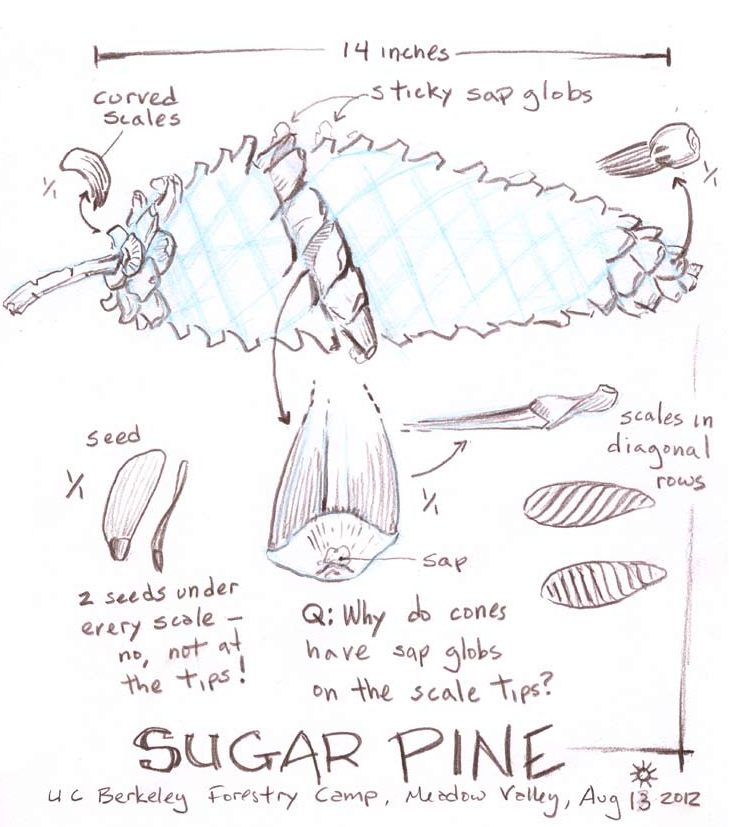 14 inches
sticky sap globs
curved
scales
1/1
1/1
scales in
diagonal
rows
seed
1/1
1/1
sap
2 seeds under
every scale –
no, not at
the tips!
Q: Why do cones
have sap globs
on the scale tips?
SUGAR PINE
UC Berkeley Forestry Camp, Meadow Valley, Aug 13 2012